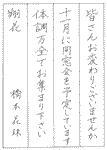 皆さんお変わりございませんか
十一月に同窓会を予定してます
体調万全でお集まり下さい
橋本花珠
翔花